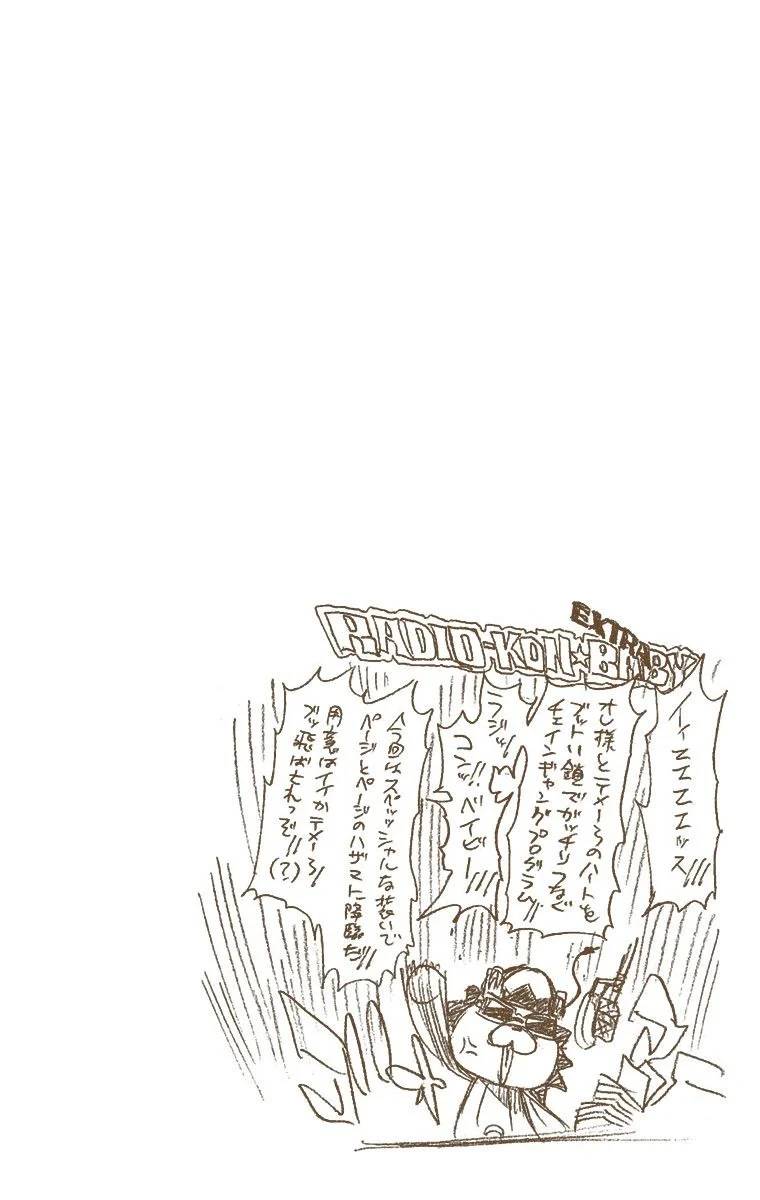 EXTRA
RADIO-KON☆BABY
イィエエエエッス!!!
オレ様とテメーらのハートを
ブットい鎖でガッチリつなぐ
チェインギャングプログラム!!
ラジッ!!
コンッ!! ベイビー!!!
今回はスペッッシャルな装いで
ページとページのハザマに降臨だ!!!
用意はイイかテメーら!
ブッ飛ばされっぞ!!!(?)